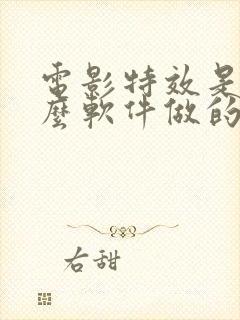 電影特效是
麼軟件做的
右甜